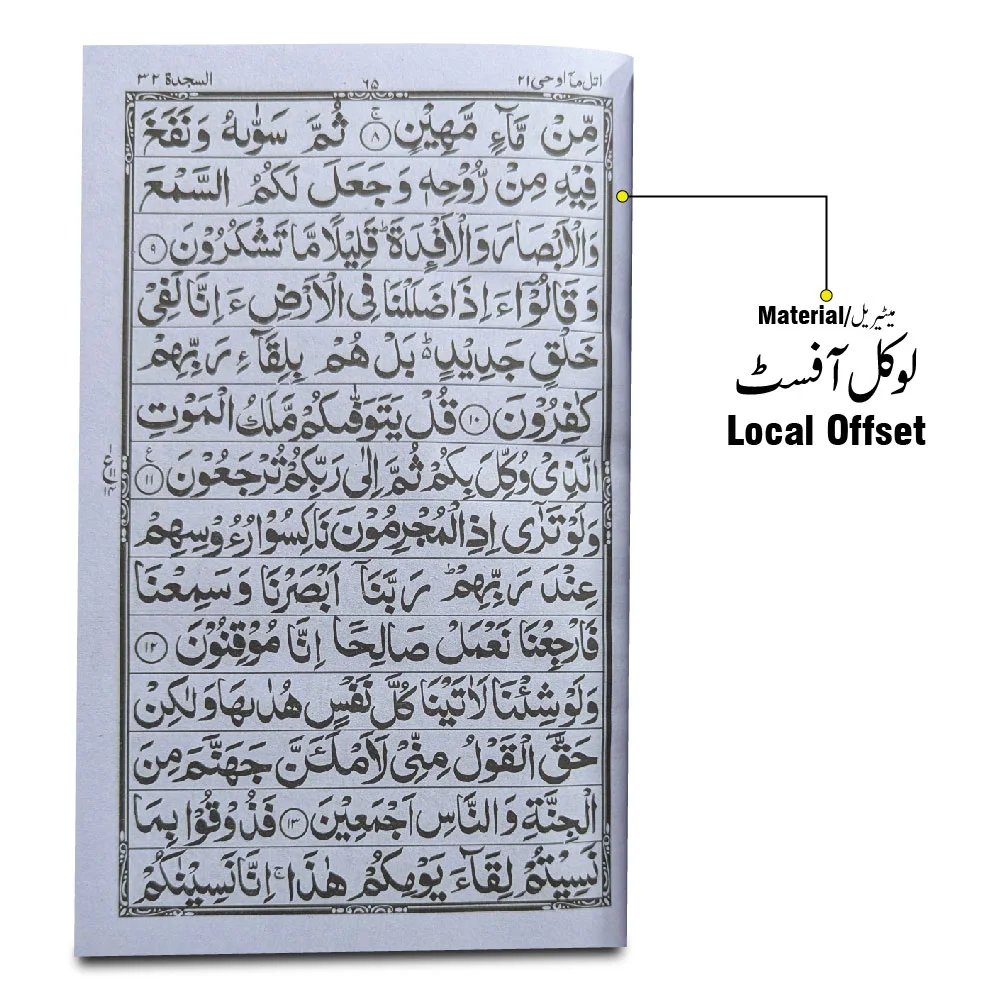 اتل ما اوحی ۲۱
۶۵
السجدة ۳۲
مِّنْ مَّآءٍ مَّهِيْنٍ ۚ ۸ ثُمَّ سَوّٰىهُ وَنَفَخَ
فِيْهِ مِنْ رُّوْحِهٖ وَجَعَلَ لَكُمُ السَّمْعَ
وَالْاَبْصَارَ وَالْاَفْـِٕدَةَ ؕ قَلِيْلًا مَّا تَشْكُرُوْنَ ۹
وَقَالُوْٓا ءَاِذَا ضَلَلْنَا فِى الْاَرْضِ ءَاِنَّا لَفِىْ
خَلْقٍ جَدِيْدٍ ؕ بَلْ هُمْ بِلِقَآءِ رَبِّهِمْ
كٰفِرُوْنَ ۱۰ قُلْ يَتَوَفّٰىكُمْ مَّلَكُ الْمَوْتِ
الَّذِىْ وُكِّلَ بِكُمْ ثُمَّ اِلٰى رَبِّكُمْ تُرْجَعُوْنَ ۱۱ ع
وَلَوْ تَرٰٓى اِذِ الْمُجْرِمُوْنَ نَاكِسُوْا رُءُوْسِهِمْ
عِنْدَ رَبِّهِمْ ؕ رَبَّنَآ اَبْصَرْنَا وَسَمِعْنَا
فَارْجِعْنَا نَعْمَلْ صَالِحًا اِنَّا مُوْقِنُوْنَ ۱۲
وَلَوْ شِئْنَا لَاٰتَيْنَا كُلَّ نَفْسٍ هُدٰىهَا وَلٰكِنْ
حَقَّ الْقَوْلُ مِنِّىْ لَاَمْلَـَٔنَّ جَهَنَّمَ مِنَ
الْجِنَّةِ وَالنَّاسِ اَجْمَعِيْنَ ۱۳ فَذُوْقُوْا بِمَا
نَسِيْتُمْ لِقَآءَ يَوْمِكُمْ هٰذَا ۚ اِنَّا نَسِيْنٰكُمْ
Material/میٹیریل
لوکل آفسٹ
Local Offset